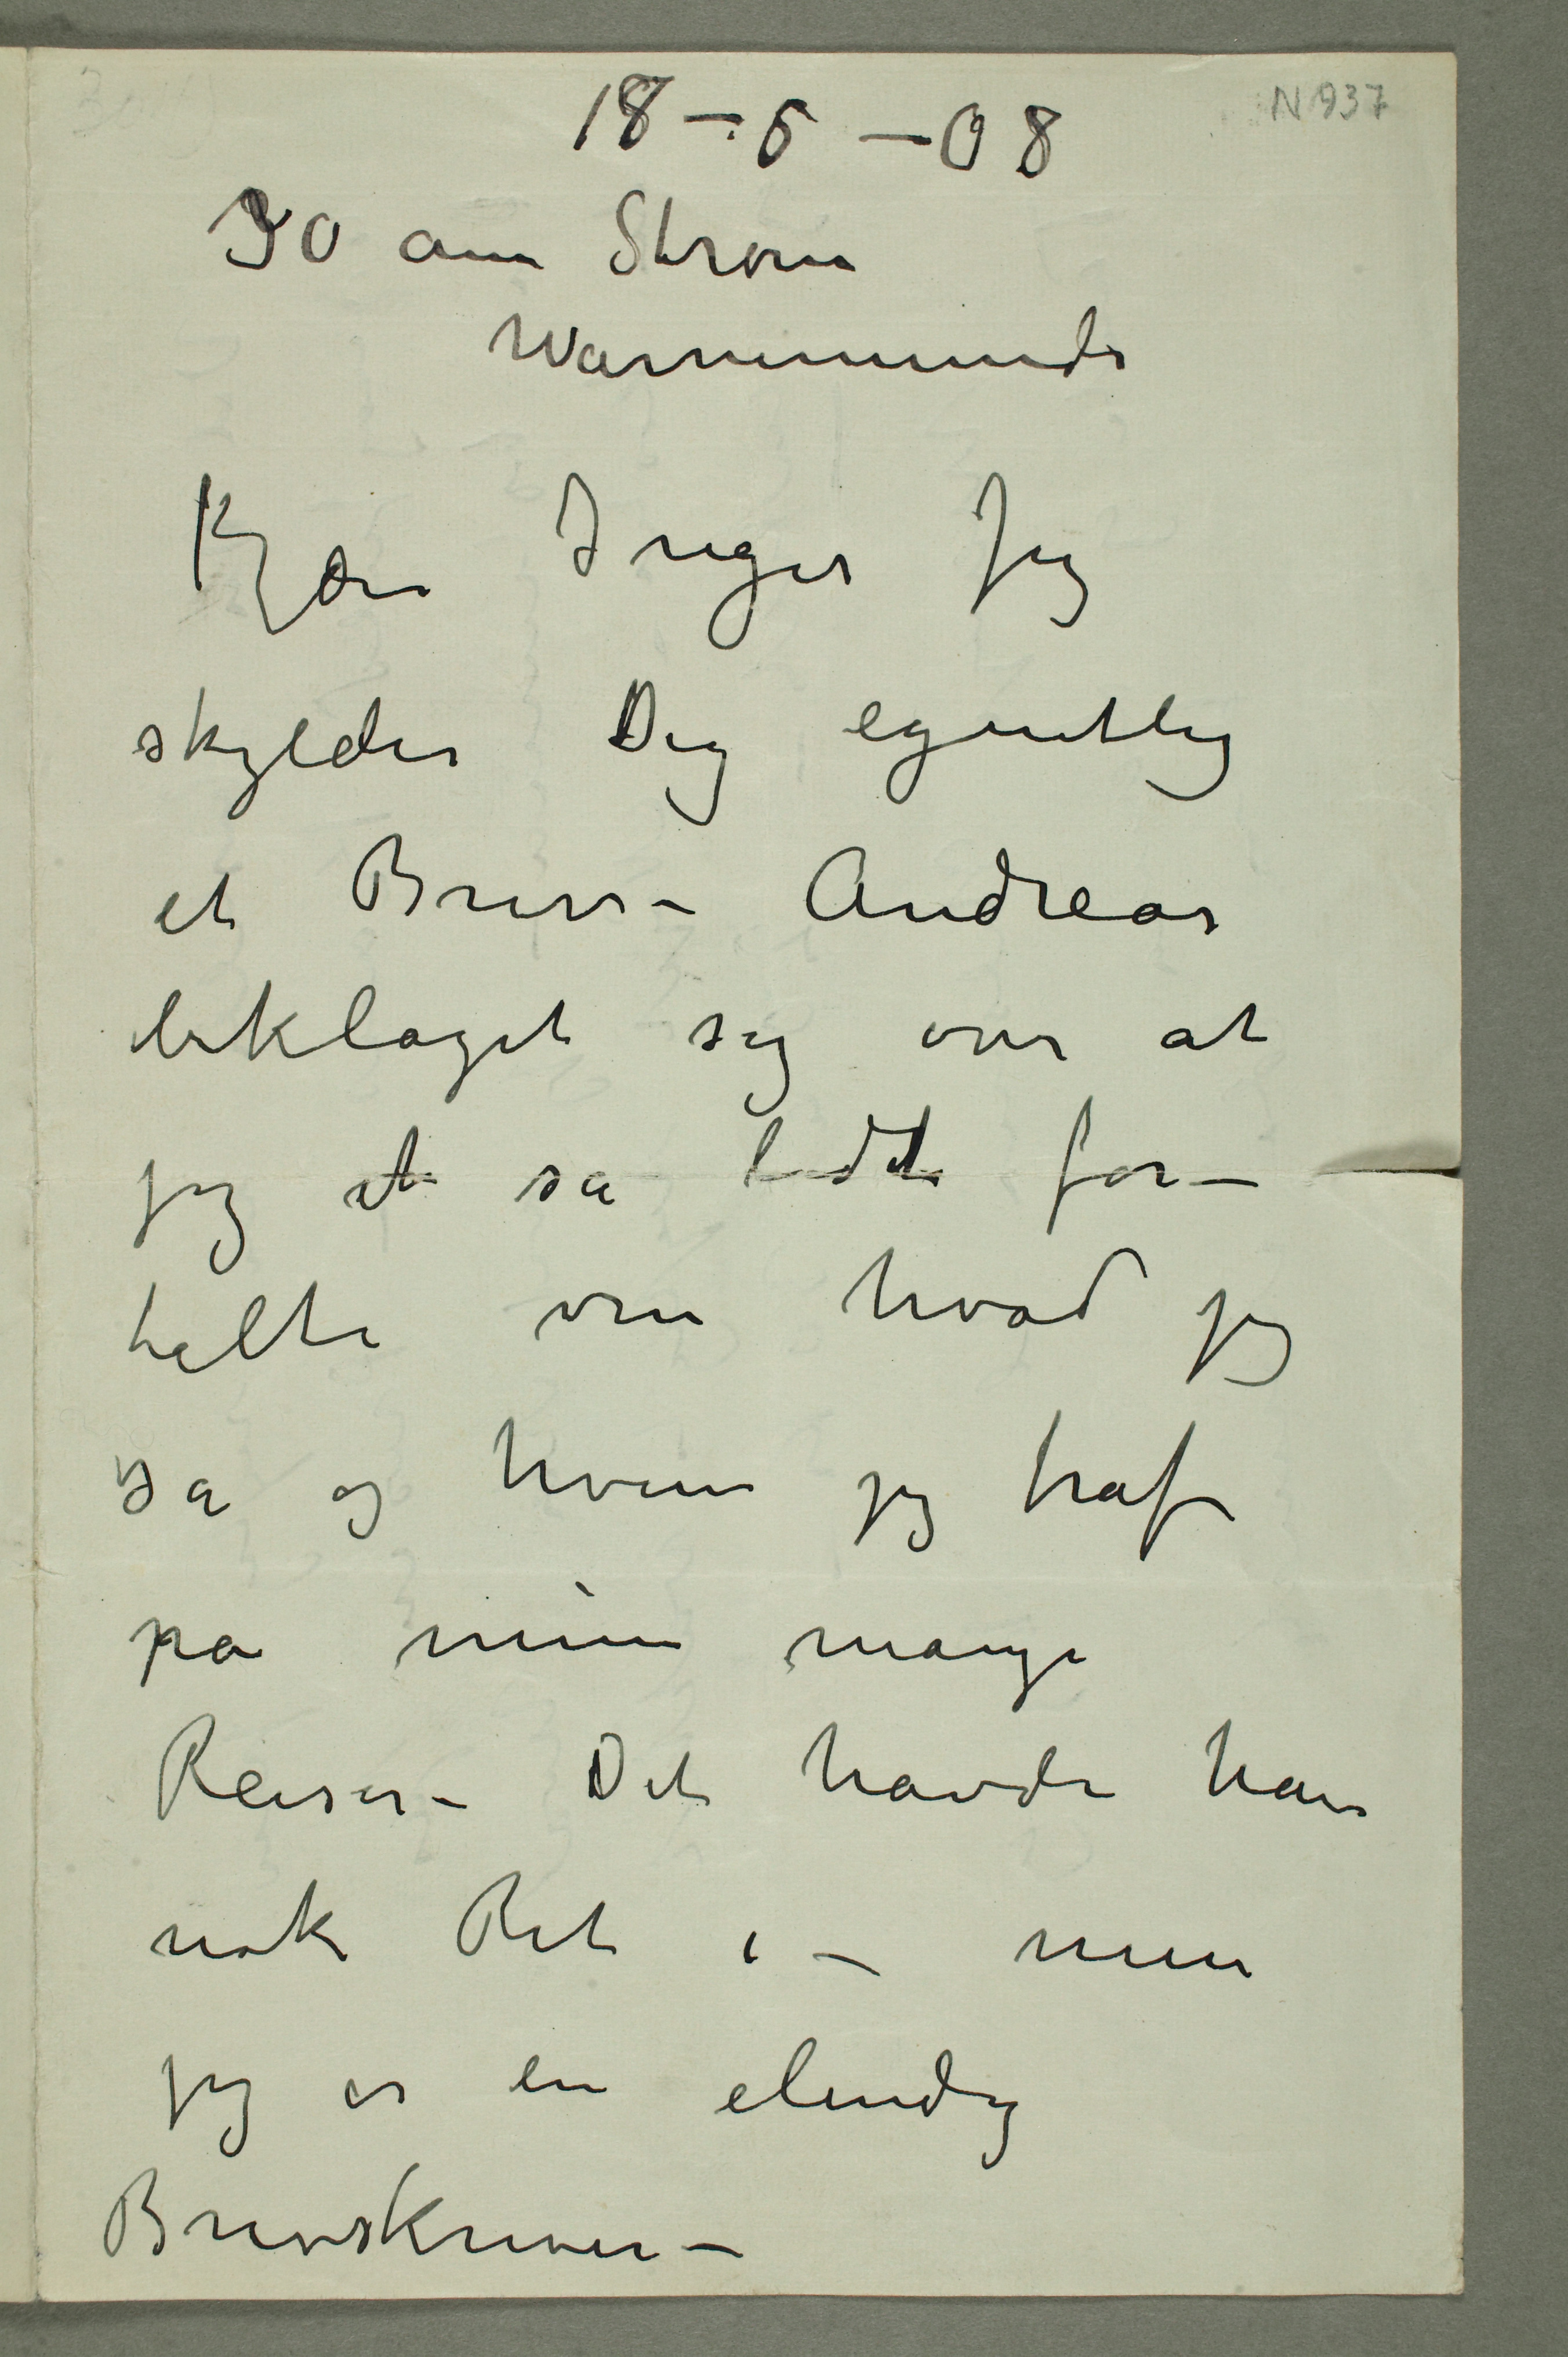 N 937
18-5-08
30 am Strom
Warnemünde
Kjære Inger Jeg
skylder Dig egentlig
et Brev – Andreas
beklaget sig over at
jeg så lidt for–
talte om hvad jeg
så og hvem jeg traf
på mine mange
Reiser – Det havde han
nok Ret i – men
jeg er en elendig
Brevskriver –